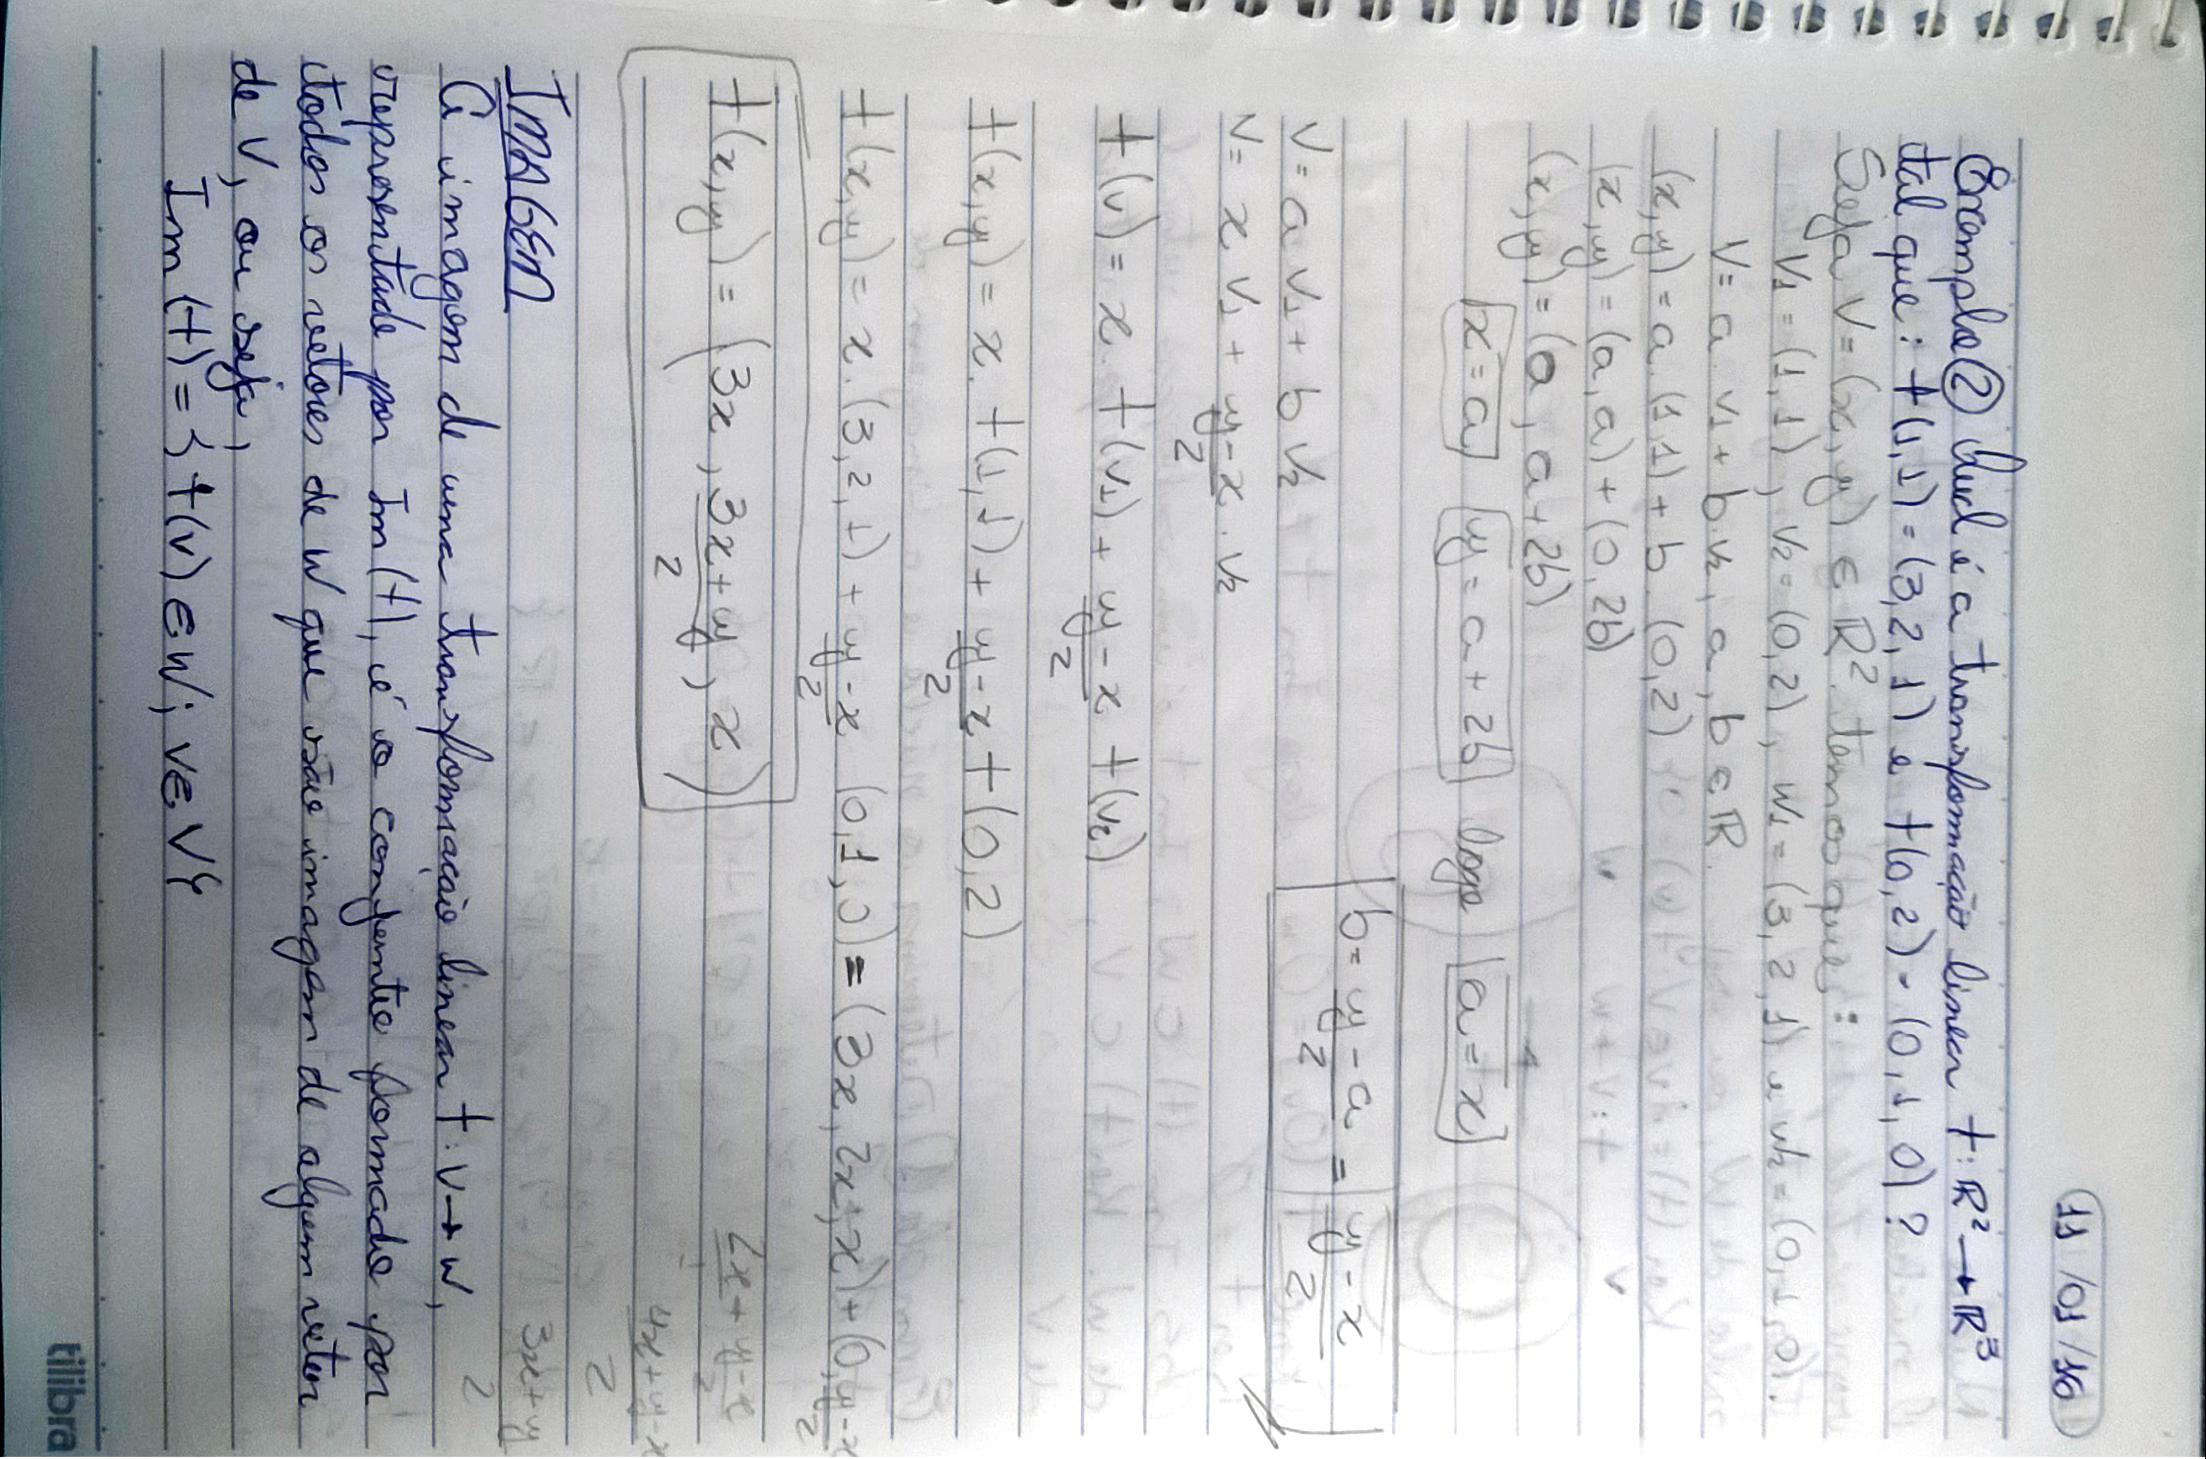 11/01/16
Exemplo ② Qual é a transformação linear t: ℝ² → ℝ³
tal que: t(1,1) = (3,2,1) e t(0,2) = (0,1,0)?
Seja V = (x,y) ∈ ℝ². temos que:
V1 = (1,1), V2 = (0,2), W1 = (3,2,1) e W2 = (0,1,0).
V = a. V1 + b. V2, a, b ∈ ℝ.
(x,y) = a. (1,1) + b. (0,2)
(x,y) = (a,a) + (0,2b)
(x,y) = (a, a+2b)
x = a y = a + 2b logo a = x
b = y - a/2 = y - x/2
V = a V1 + b V2
V = x V1 + y-x/2 . V2
t(v) = x. t(V1) + y-x/2 t(V2)
t(x,y) = x. t(1,1) + y-x/2 t(0,2)
t(x,y) = x.(3,2,1) + y-x/2 (0,1,0) = (3x, 2x, x) + (0, y-x/2
t(x,y) = (3x, 3x+y/2, x)
2x/1 + y-x/2
4x+y-x/2
3x+y/2
IMAGEM
A imagem de uma transformação linear t: V→W,
representada por Im(t), é o conjunto formado por
todos os vetores de W que são imagem de algum vetor
de V, ou seja,
Im(t) = {t(v) ∈ W; v ∈ V}
tilibra